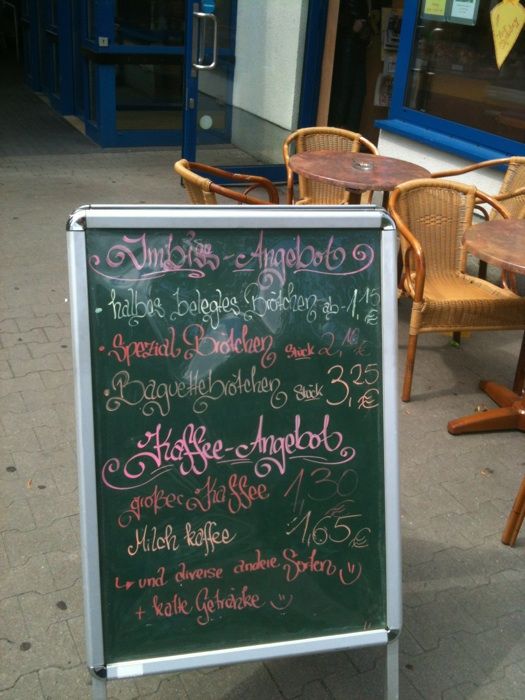 Imbiss-Angebot
• halbes belegtes Brötchen ab 1,15 €
• Spezial Brötchen Stück 2,10 €
• Baguettebrötchen Stück 3,25 €
Kaffee-Angebot
großer Kaffee 1,30
Milchkaffee 1,65 €
↳ und diverse andere Sorten :)
+ kalte Getränke :)